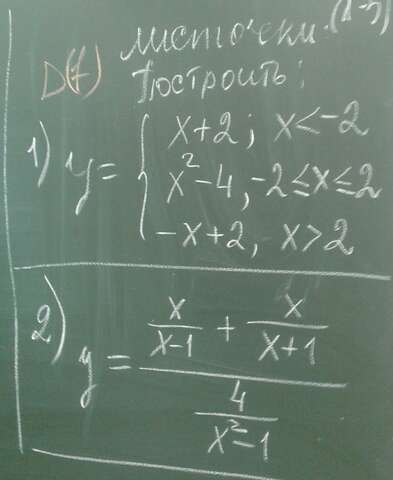 листочки.
D(f) Построить:
1) y = { x+2; x<-2
x²-4, -2≤x≤2
-x+2, x>2
2) y = (x/(x-1) + x/(x+1)) / (4/(x²-1))